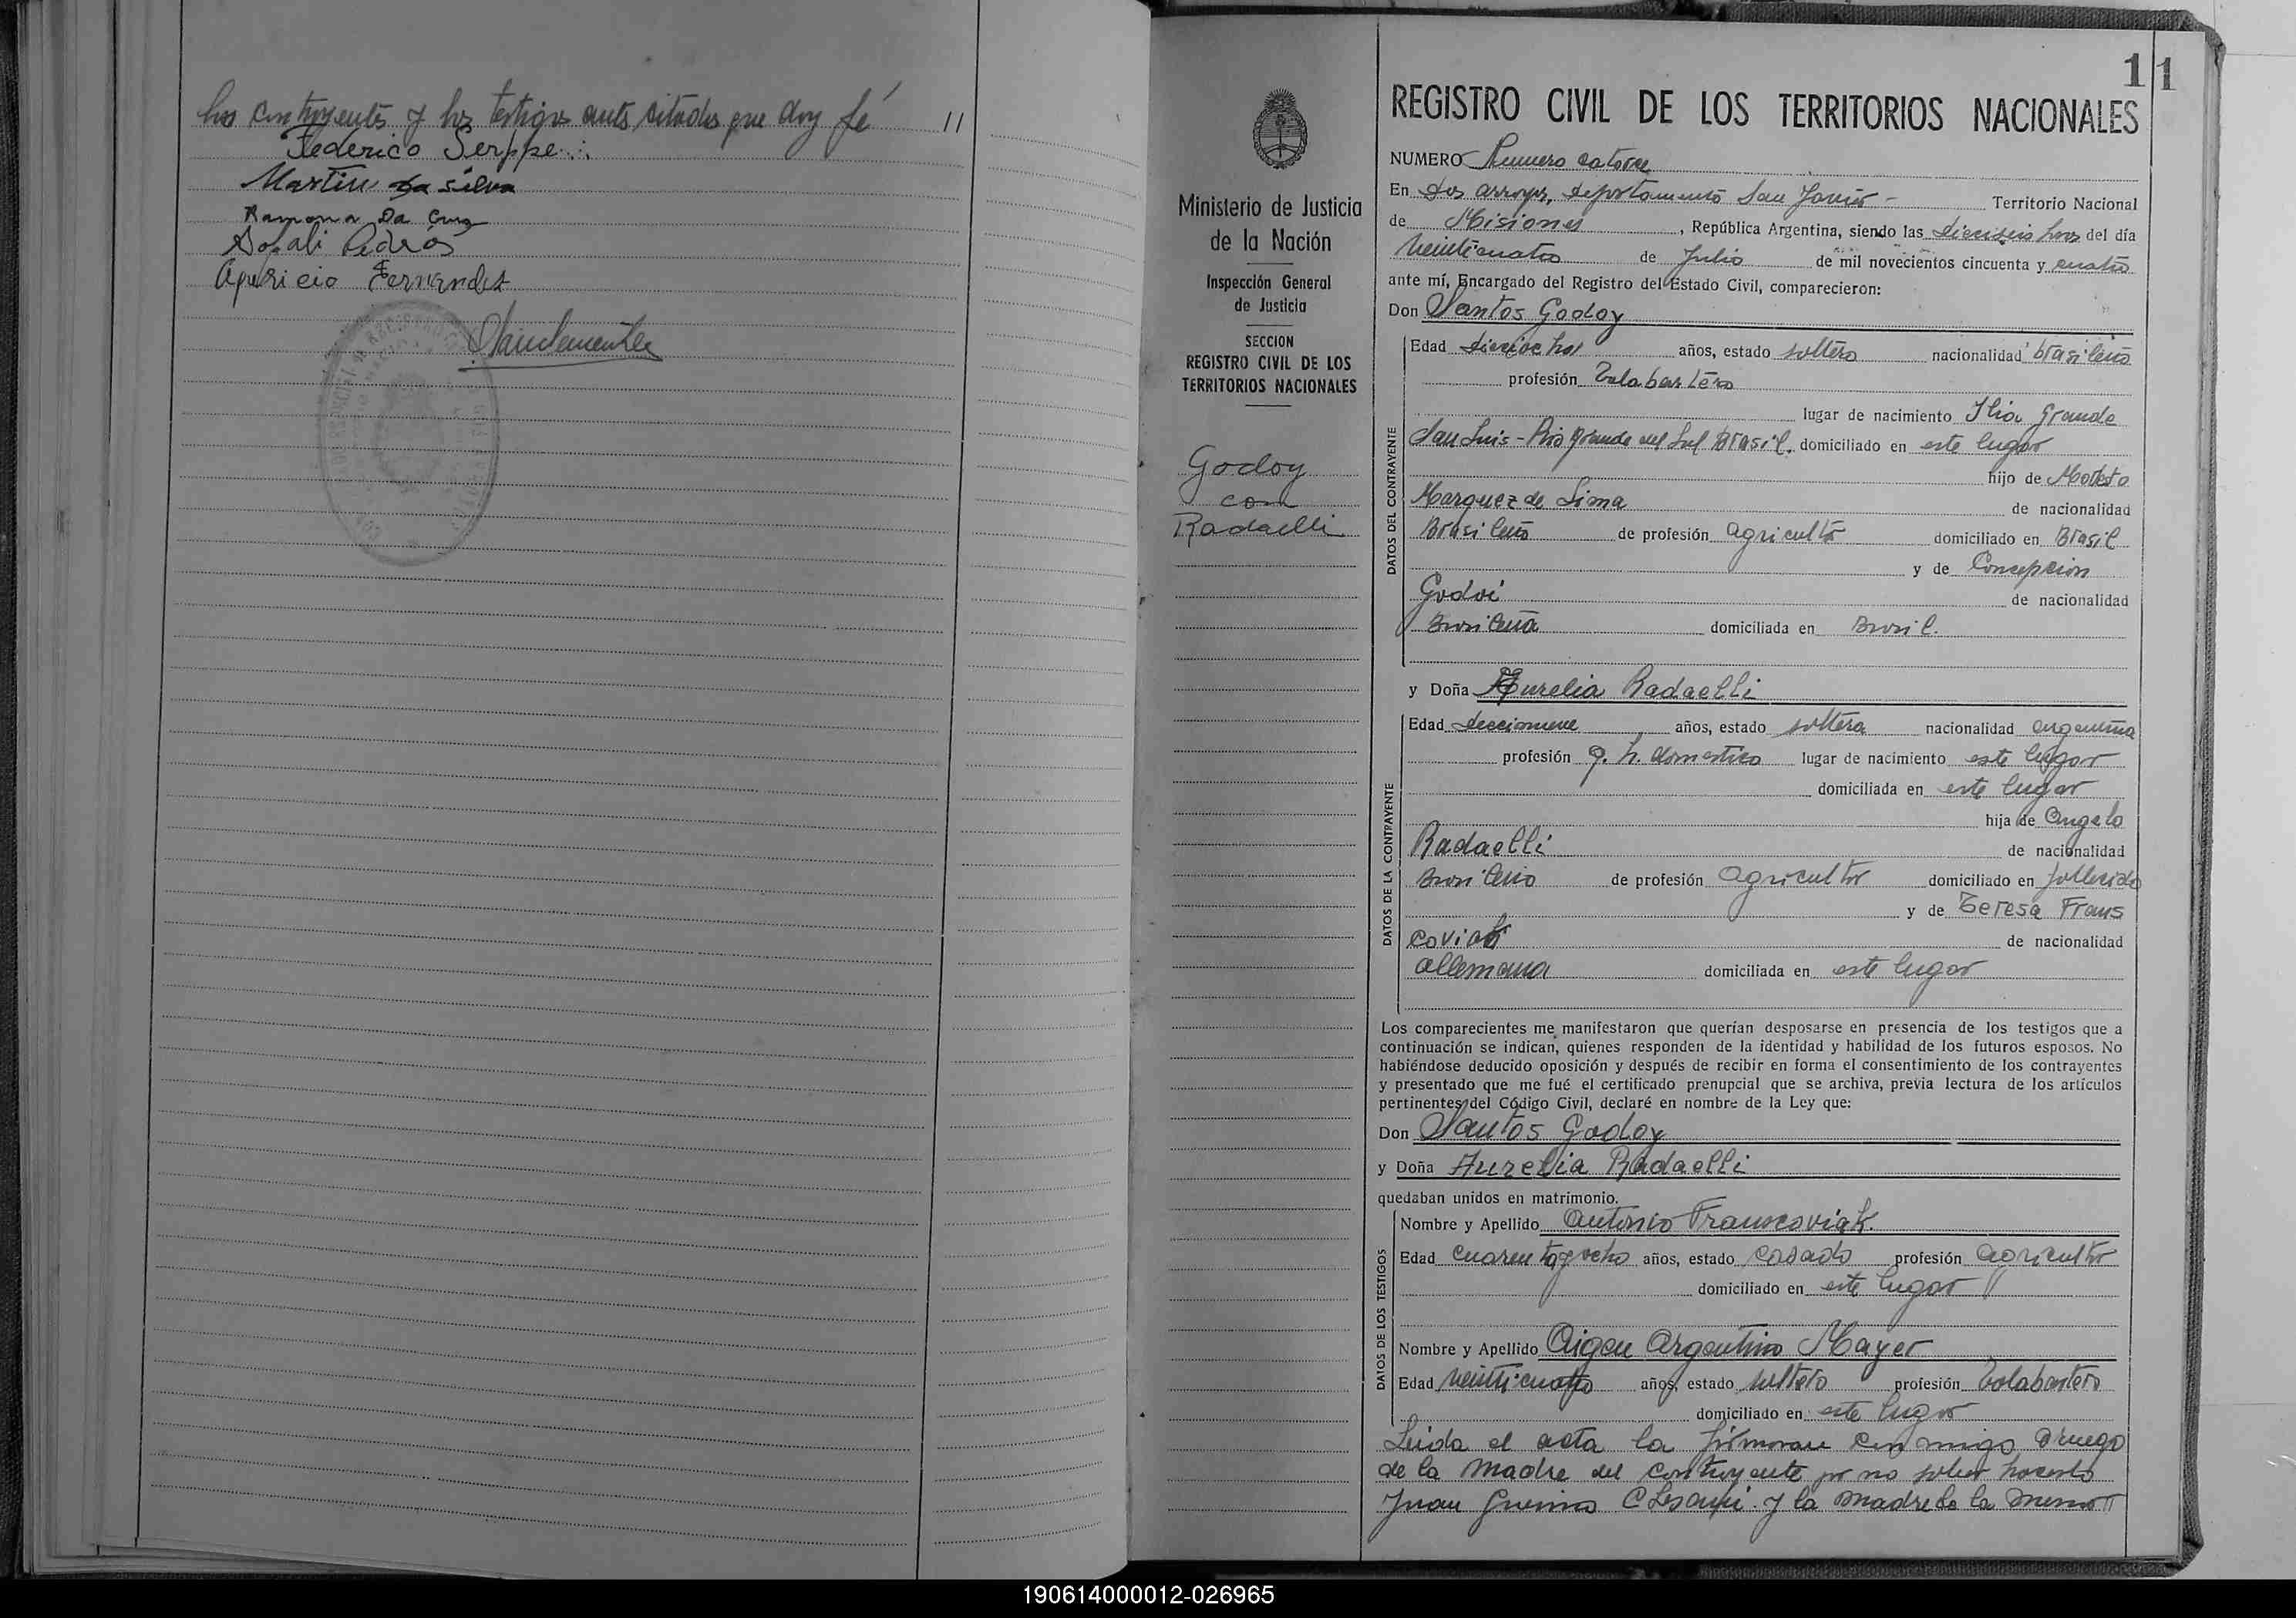 los contrayentes y los testigos antes citados que doy fé //
Federico Serppe
Martin da silva
Ramona Da Cruz
Pedros
Aparicio Fernandez
11
REGISTRO CIVIL DE LOS TERRITORIOS NACIONALES
Ministerio de Justicia
de la Nación
Inspección General
de Justicia
SECCION
REGISTRO CIVIL DE LOS
TERRITORIOS NACIONALES
Godoy
con
Radaelli
NUMERO Numero catorce
En Dos arroyos, departamento San Javier - Territorio Nacional
de Misiones, República Argentina, siendo las dieciseis horas del día
Veinticuatro de Julio de mil novecientos cincuenta y cuatro
ante mí, Encargado del Registro del Estado Civil, comparecieron:
Don Santos Godoy
DATOS DEL CONTRAYENTE
Edad dieciocho años, estado soltero nacionalidad brasileño
profesión Talabartero
lugar de nacimiento Ilia Grande
San Luis - Rio Grande del Sul Brasil. domiciliado en este lugar
hijo de Modesto
Marquez de Lima de nacionalidad
Brasileño de profesión agricultor domiciliado en Brasil
y de Concepcion
Godoi de nacionalidad
Brasileña domiciliada en Brasil.
y Doña Aurelia Radaelli
DATOS DE LA CONTRAYENTE
Edad diecinueve años, estado soltera nacionalidad argentina
profesión q. h. domestico lugar de nacimiento este lugar
domiciliada en este lugar
hija de Angelo
Radaelli de nacionalidad
Brasileño de profesión agricultor domiciliado en fallecido
y de Teresa Frans
coviak de nacionalidad
allemana domiciliada en este lugar
Los comparecientes me manifestaron que querían desposarse en presencia de los testigos que a
continuación se indican, quienes responden de la identidad y habilidad de los futuros esposos. No
habiéndose deducido oposición y después de recibir en forma el consentimiento de los contrayentes
y presentado que me fué el certificado prenupcial que se archiva, previa lectura de los artículos
pertinentes del Código Civil, declaré en nombre de la Ley que:
Don Santos Godoy
y Doña Aurelia Radaelli
quedaban unidos en matrimonio.
DATOS DE LOS TESTIGOS
Nombre y Apellido Antonio Franscoviak.
Edad cuarenta y ocho años, estado casado profesión agricultor
domiciliado en este lugar //
Nombre y Apellido Aigen Argentino Mayer
Edad veinticuatro años, estado soltero profesión Talabartero
domiciliado en este lugar
Leida el acta la firmaron conmigo a ruego
de la madre del contrayente por no saber hacerlo
Juan y la madre de la menor //
190614000012-026965